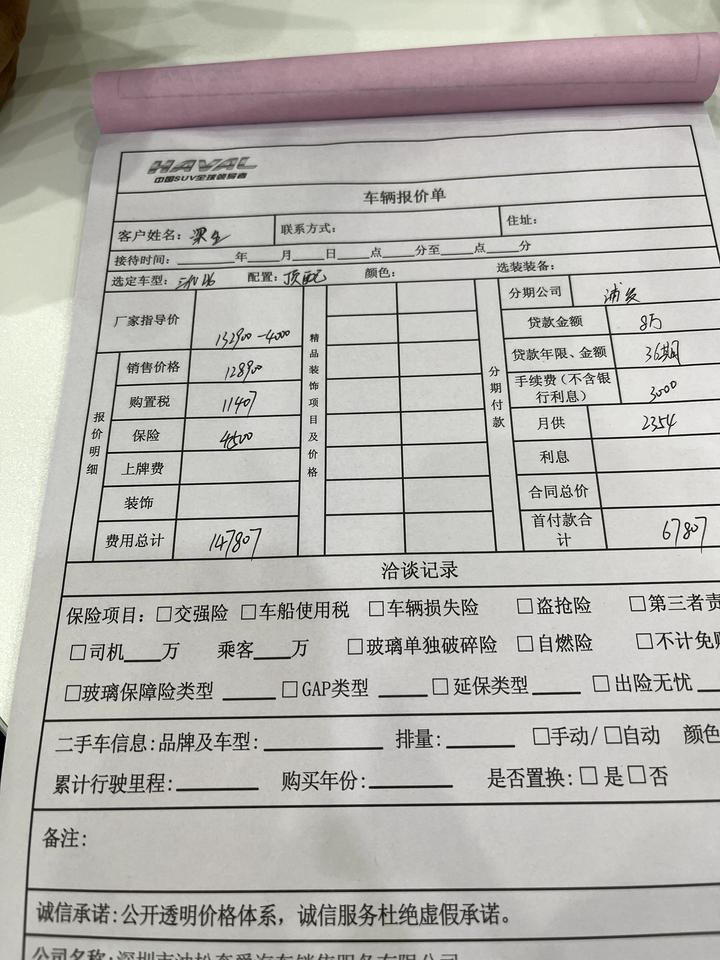 HAVAL
中国SUV全球领导者
车辆报价单
客户姓名: 梁生 联系方式: 住址:
接待时间: 年 月 日 点 分至 点 分
选定车型: 配置: 顶配 颜色: 选装装备:
厂家指导价 132900-4000
报价明细
销售价格 128900
购置税 11407
保险 4500
上牌费
装饰
费用总计 147807
精品装饰项目及价格
分期付款
分期公司 浦发
贷款金额 8万
贷款年限、金额 36期
手续费(不含银行利息) 3000
月供 2354
利息
合同总价
首付款合计 67807
洽谈记录
保险项目: □交强险 □车船使用税 □车辆损失险 □盗抢险 □第三者责
□司机____万 乘客____万 □玻璃单独破碎险 □自燃险 □不计免
□玻璃保障险类型 ____ □GAP类型 ____ □延保类型 ____ □出险无忧
二手车信息: 品牌及车型: ____ 排量: ____ □手动/□自动 颜色
累计行驶里程: ____ 购买年份: ____ 是否置换: □是□否
备注:
诚信承诺: 公开透明价格体系，诚信服务杜绝虚假承诺。
公司名称: